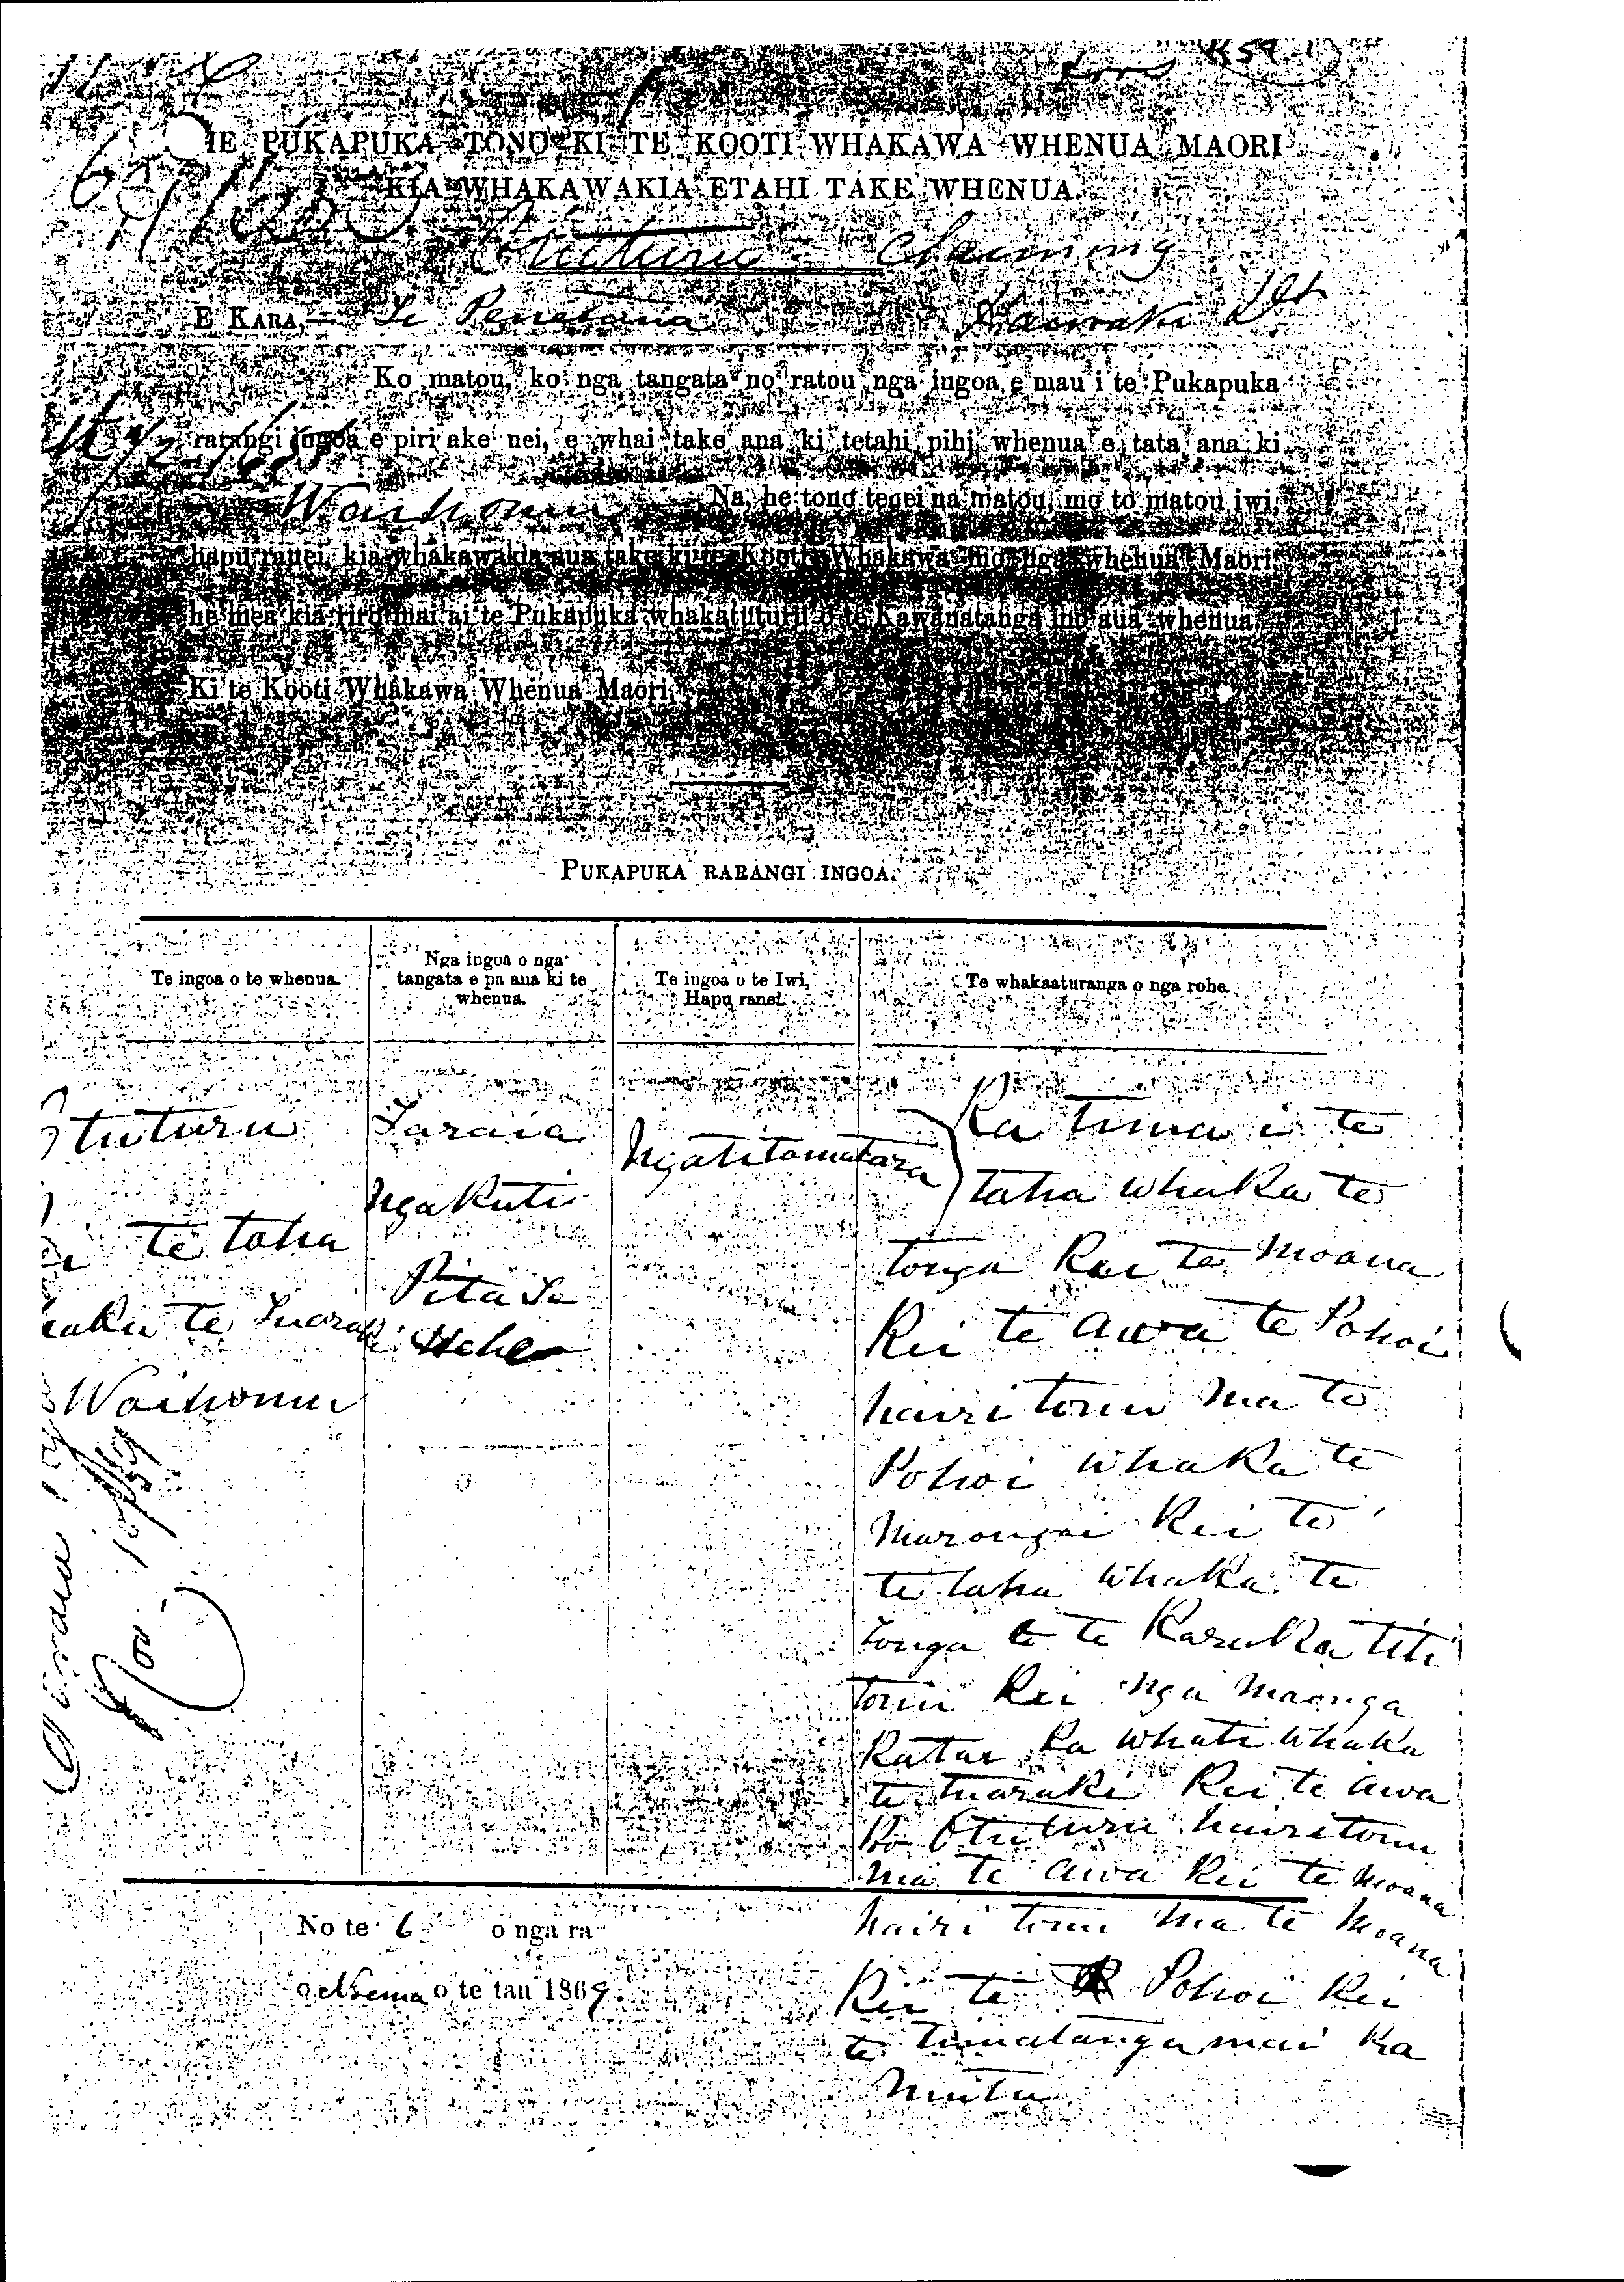 HE PUKAPUKA TONO KI TE KOOTI WHAKAWA WHENUA MAORI
KIA WHAKAWAKIA ETAHI TAKE WHENUA.
Otuturu Claiming
E KARA,— Te Penetana Hauraki Dst
Ko matou, ko nga tangata no ratou nga ingoa e mau i te Pukapuka
rarangi ingoa e piri ake nei, e whai take ana ki tetahi pihi whenua e tata ana ki
Waihonu Na, he tono tenei na matou, mo to matou iwi,
hapu ranei, kia whakawakia aua take ki te Kooti Whakawa mo nga whenua Maori
he mea kia riro mai ai te Pukapuka whakatuturu o te Kawanatanga mo aua whenua
Ki te Kooti Whakawa Whenua Maori.
PUKAPUKA RARANGI INGOA.
Te ingoa o te whenua.
Nga ingoa o nga
tangata e pa ana ki te
whenua.
Te ingoa o te Iwi,
Hapu ranei.
Te whakaaturanga o nga rohe.
Otuturu
te taha
te Tuaraki
Waihonu
Taraia
Ngakuti
Pita Te
Hehe
Ngatitamatara
Ka Tima i te
taha whaka te
tonga Kei te Moana
Kei te awa te Pohoi
hairi tonu Ma te
Pohoi whaka te
Marangai Kei te
te taha whaka te
tonga o te Karuka titi
tonu Kei nga Maonga
Katar Ka whati whaka
te tuaraki Kei te awa
Ko Otuturu hairi tonu
ma te awa Kei te Moana
hairi tonu Ma te Moana
Kei te Pohoi Kei
te timatanga mai Ka
Mutu
No te 6 o nga ra
o Noema o te tau 1869.